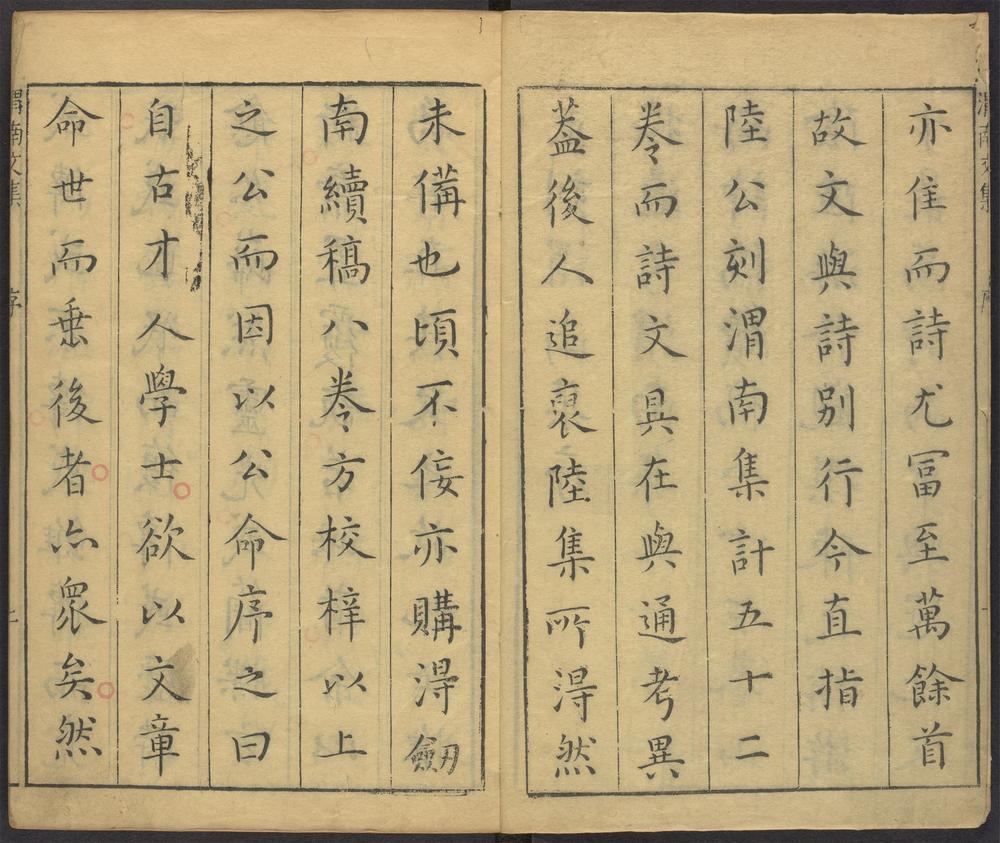 亦隹而詩尤冨至萬餘首
故文與詩别行今直指
陸公刻渭南集計五十二
卷而詩文具在與通考異
葢後人追裒陸集所得然
未備也頃不佞亦購得劔
南續稿八卷方校梓以上
之公而因以公命序之曰
自古才人學士欲以文章
命世而垂後者亦衆矣然
渭南文集
序